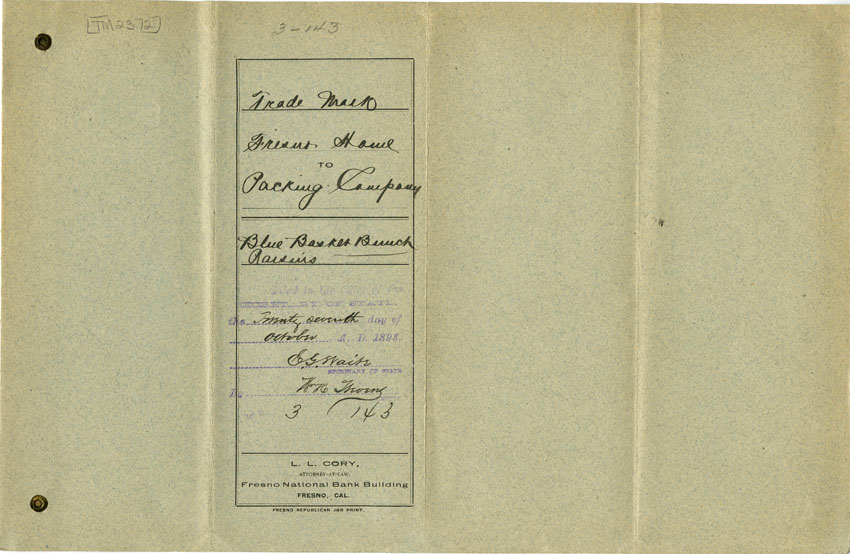 [TM2372]
3-143
Trade Mark
Fresno Home
TO
Packing Company
Blue Basket Bunch
Raisins
in the Office of the
SECRETARY OF STATE
the Twenty seventh day of
October A. D. 1893
E.G. Waite
SECRETARY OF STATE
By W H
3 143
L. L. CORY,
ATTORNEY-AT-LAW,
Fresno National Bank Building
FRESNO, CAL.
FRESNO REPUBLICAN JOB PRINT.